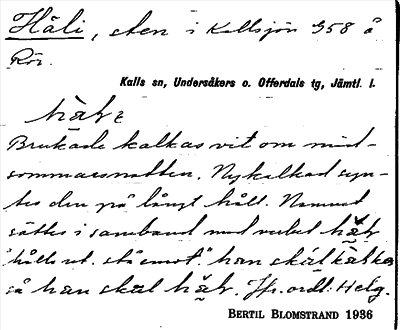 Håli, sten i Kallsjön 958 å
Rör.
Kalls sn, Undersåkers o. Offerdals tg, Jämtl. l.
Brukade kalkas vit om mid-
sommarsnatten. Nykalkad syn-
tes den på långt håll. Namnet
sättes i samband med verbet
"hålla ut, stå emot" han skäl
så han skäl Jfr. ordl. Helg.
BERTIL BLOMSTRAND 1936